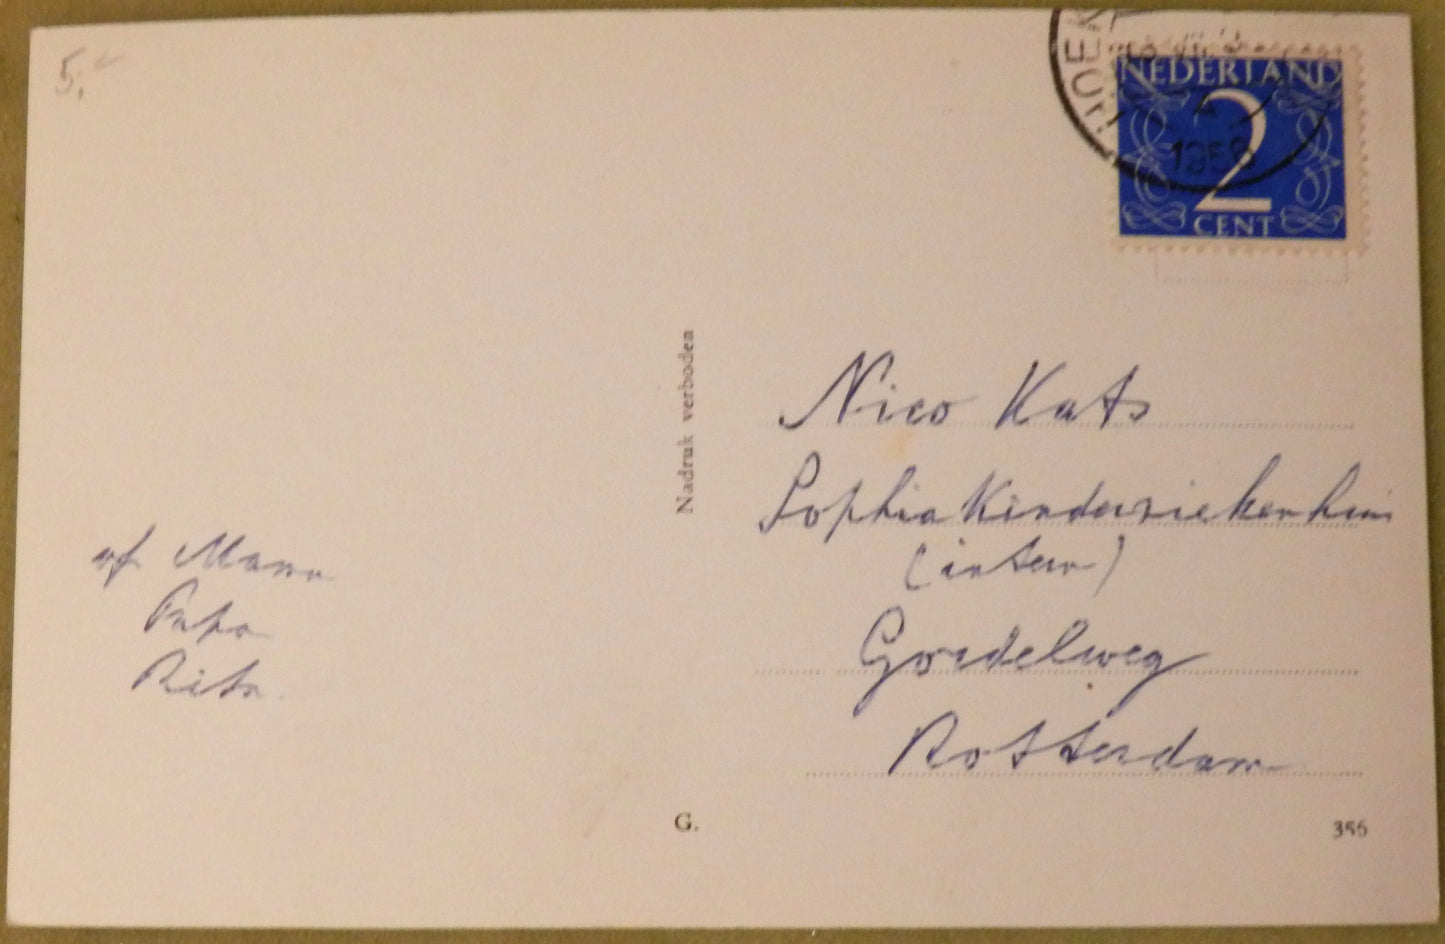 5,-
NEDERLAND
2
CENT
Nadruk verboden
Nico Kats
Sophia Kinderziekenhuis
(intern)
Gordelweg
Rotterdam
Mama
Papa
Rita
G.
356